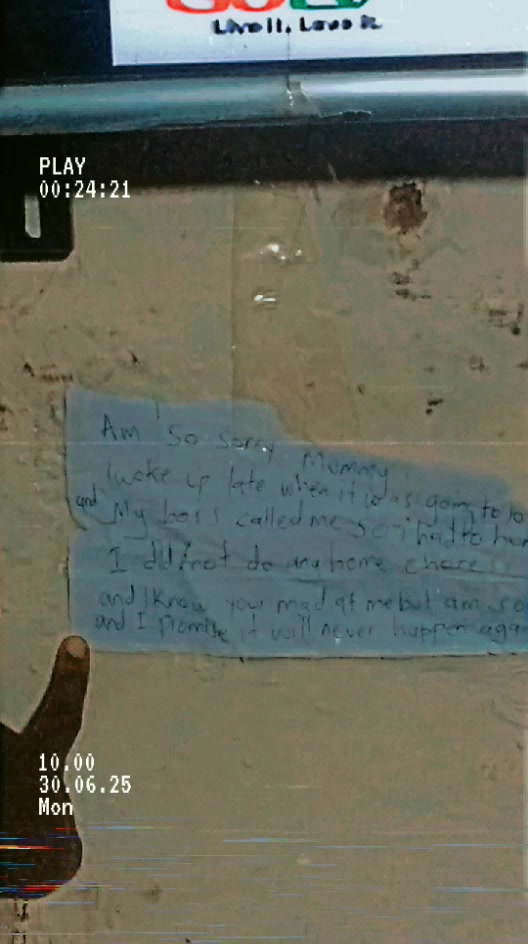 Live It. Love It.
PLAY
00:24:21
Am So Sorry Mummy
I woke up late when it was going to 10
and My boss called me so i had to
I did not do any home chore
and I Know your mad at me but am so
and I Promise it will never happen
10.00
30.06.25
Mon